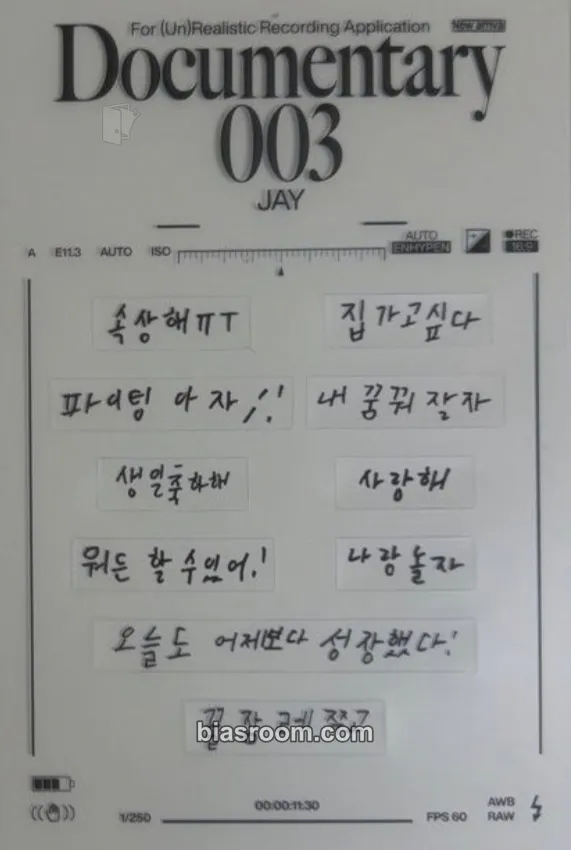 For (Un)Realistic Recording Application New arrival
Documentary
003
JAY
A E11.3 AUTO ISO AUTO ENHYPEN REC 16:9
속상해ㅠㅜ 집가고싶다
파이팅 아자!! 내 꿈꿔 잘자
생일축하해 사랑해
뭐든 할 수 있어! 나랑놀자
오늘도 어제보다 성장했다!
꿀잠
biasroom.com
1/250 00:00:11:30 FPS 60 AWB RAW